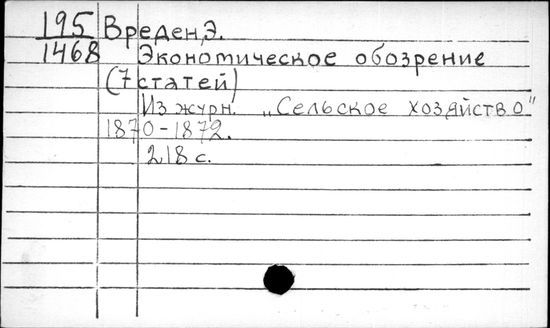 195 Вреден,Э.
1468 Экономическое обозрение
(7 статей)
Из журн. „Сельское хозяйство"
1870-1872.
218 с.